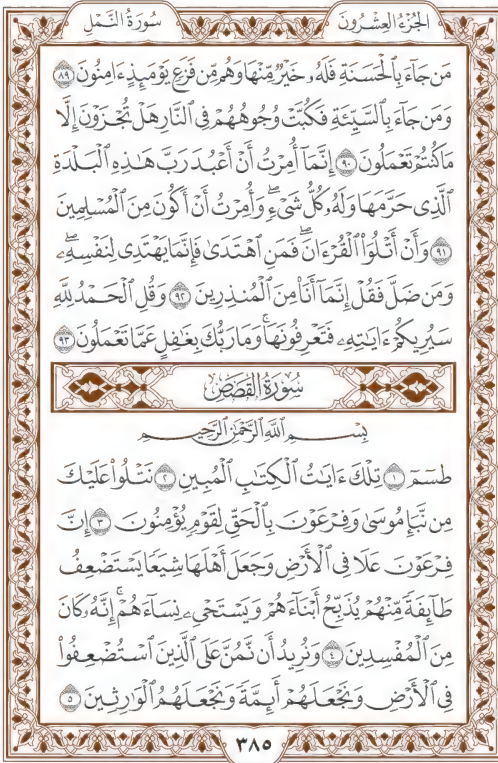 الجزء العشرون سورة النمل
مَن جَآءَ بِٱلْحَسَنَةِ فَلَهُۥ خَيْرٌ مِّنْهَا وَهُم مِّن فَزَعٍ يَوْمَئِذٍ ءَامِنُونَ ٨٩
وَمَن جَآءَ بِٱلسَّيِّئَةِ فَكُبَّتْ وُجُوهُهُمْ فِى ٱلنَّارِ هَلْ تُجْزَوْنَ إِلَّا
مَا كُنتُمْ تَعْمَلُونَ ٩٠ إِنَّمَآ أُمِرْتُ أَنْ أَعْبُدَ رَبَّ هَٰذِهِ ٱلْبَلْدَةِ
ٱلَّذِى حَرَّمَهَا وَلَهُۥ كُلُّ شَىْءٍ ۖ وَأُمِرْتُ أَنْ أَكُونَ مِنَ ٱلْمُسْلِمِينَ
٩١ وَأَنْ أَتْلُوَا۟ ٱلْقُرْءَانَ ۖ فَمَنِ ٱهْتَدَىٰ فَإِنَّمَا يَهْتَدِى لِنَفْسِهِۦ ۖ
وَمَن ضَلَّ فَقُلْ إِنَّمَآ أَنَا۠ مِنَ ٱلْمُنذِرِينَ ٩٢ وَقُلِ ٱلْحَمْدُ لِلَّهِ
سَيُرِيكُمْ ءَايَٰتِهِۦ فَتَعْرِفُونَهَا ۚ وَمَا رَبُّكَ بِغَٰفِلٍ عَمَّا تَعْمَلُونَ ٩٣
سُورَةُ القَصَصِ
بِسْمِ ٱللَّهِ ٱلرَّحْمَٰنِ ٱلرَّحِيمِ
طسٓمٓ ١ تِلْكَ ءَايَٰتُ ٱلْكِتَٰبِ ٱلْمُبِينِ ٢ نَتْلُوا۟ عَلَيْكَ
مِن نَّبَإِ مُوسَىٰ وَفِرْعَوْنَ بِٱلْحَقِّ لِقَوْمٍ يُؤْمِنُونَ ٣ إِنَّ
فِرْعَوْنَ عَلَا فِى ٱلْأَرْضِ وَجَعَلَ أَهْلَهَا شِيَعًا يَسْتَضْعِفُ
طَآئِفَةً مِّنْهُمْ يُذَبِّحُ أَبْنَآءَهُمْ وَيَسْتَحْىِۦ نِسَآءَهُمْ ۚ إِنَّهُۥ كَانَ
مِنَ ٱلْمُفْسِدِينَ ٤ وَنُرِيدُ أَن نَّمُنَّ عَلَى ٱلَّذِينَ ٱسْتُضْعِفُوا۟
فِى ٱلْأَرْضِ وَنَجْعَلَهُمْ أَئِمَّةً وَنَجْعَلَهُمُ ٱلْوَٰرِثِينَ ٥
٣٨٥